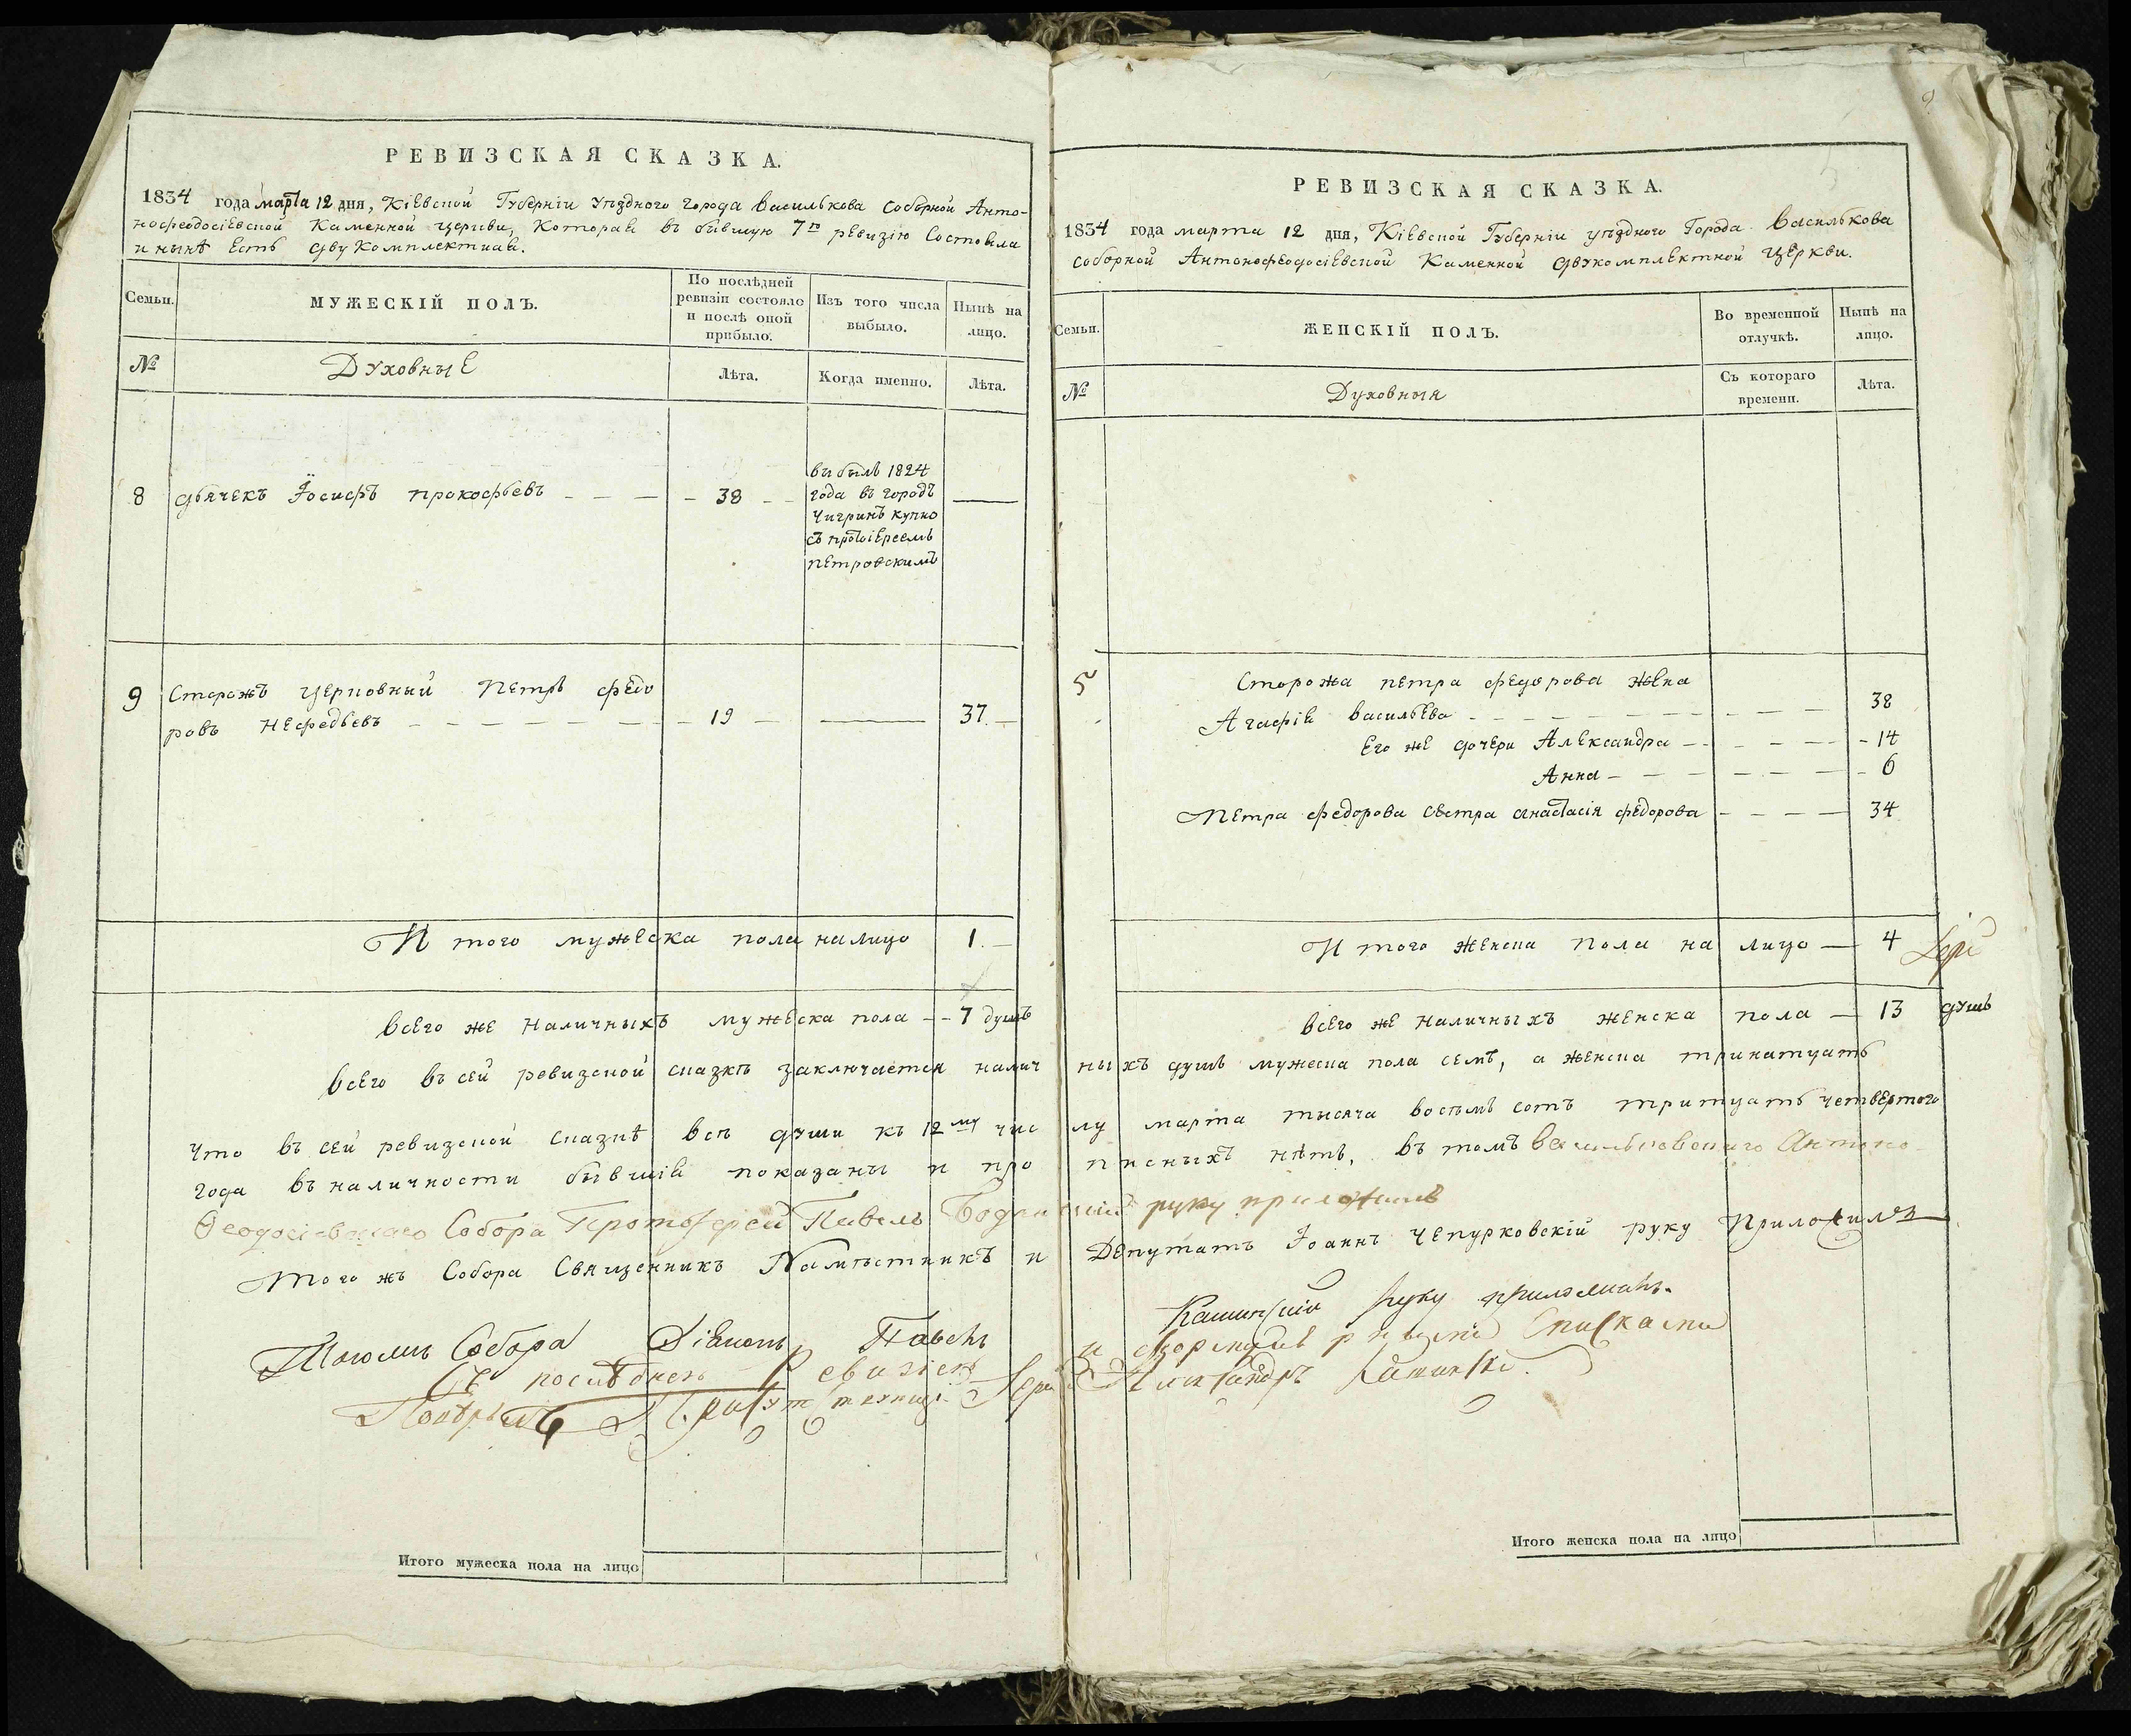 РЕВИЗСКАЯ СКАЗКА.
1834 года марта 12 дня, Кіевской Губерніи уѣзднаго города Василькова соборной Анто-
нофеодосіевской Каменной церкви, Которая въ бывшую 7ю ревизію состояла
и нынѣ есть двукомплектная.
Семьи.
МУЖЕСКІЙ ПОЛЪ.
По послѣдней ревизіи состояло и послѣ оной прибыло.
Изъ того числа выбыло.
Нынѣ на лицо.
№
Духовные
Лѣта.
Когда именно.
Лѣта.
8 дьячекъ Іосифъ прокофьевъ - - - - 38 - -
выбылъ 1824
года въ городъ
Чигринъ купно
съ протоіереемъ
петровскимъ
9 Сторожъ церковный Петръ федо
ровъ Нефедьевъ - - - - - - - 19 - —— 37. -
Итого мужеска пола на лицо 1. -
всего же наличныхъ мужеска пола - - 7 душъ
Итого мужеска пола на лицо
РЕВИЗСКАЯ СКАЗКА.
1834 года марта 12 дня, Кіевской Губерніи уѣзднаго Города Василькова
соборной Антонофеодосіевской Каменной двукомплектной церкви.
Семьи.
ЖЕНСКІЙ ПОЛЪ.
Во временной отлучкѣ.
Нынѣ на лицо.
№
Духовныя
Съ котораго времени.
Лѣта.
Сторожа петра федорова жена
Агафія васильева - - - - - 38
Его же дочери Александра - - - - 14
Анна - - - - - 6
Петра федорова сестра анастасія федорова - - - - 34
Итого женска пола на лицо — 4
всего же наличныхъ женска пола — 13 душъ
всего въ сей ревизской сказкѣ заключается наличныхъ душъ мужеска пола семъ, а женска тринатцать
что въ сей ревизской сказкѣ всѣ души къ 12му числу марта тысяча восемъ сотъ тритцать четвертого
года въ наличности бывшія показаны и прописныхъ нѣтъ, въ томъ васильковскаго Антоно
Феодосіевскаго Собора Протоіерей Павелъ руку приложилъ
Того жъ Собора Священникъ Намѣстникъ и Депутатъ Іоаннъ Чепурковскій руку Приложилъ
Тогожъ Собора Діаконъ Павелъ Кашинскій руку приложилъ.
Съ послѣднею Ревизіею и
Александръ
Итого женска пола на лицо